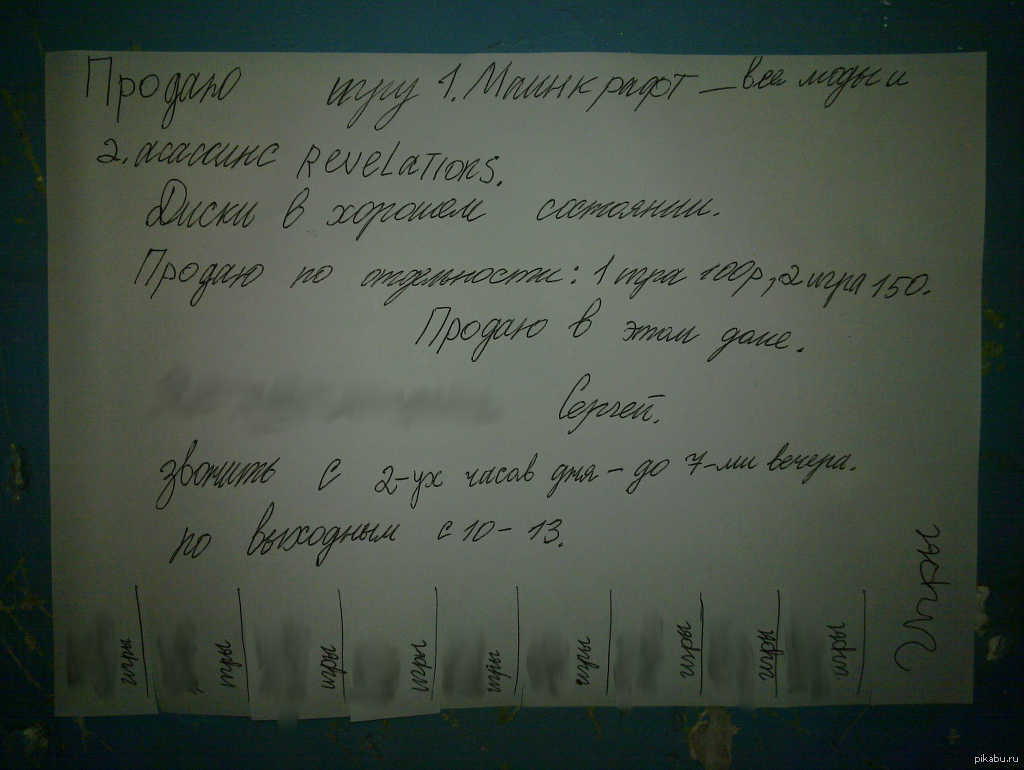 Продаю игру 1. Маинкрафт – все моды и
2. асассинс Revelations.
Диски в хорошем состоянии.
Продаю по отдельности: 1 игра 100р, 2 игра 150.
Продаю в этом доме.
Сергей.
звонить с 2-ух часов дня – до 7-ми вечера.
по выходным с 10 – 13.
игры
игры
игры
игры
игры
игры
игры
игры
игры
Игры
pikabu.ru